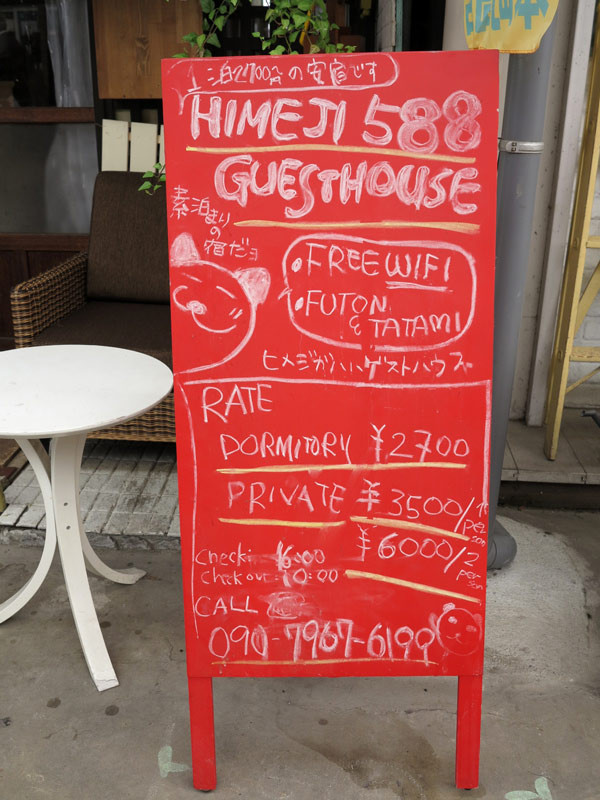 1泊2700円の安宿です
HIMEJI 588
GUESTHOUSE
素泊まり
の
宿だヨ
• FREE WIFI
• FUTON
& TATAMI
ヒメジガハハゲストハウス
RATE
DORMITORY ¥2700
PRIVATE ¥3500/1
person
¥6000/2
person
Check: 16:00
Chekout 10:00
CALL
090-7967-6199